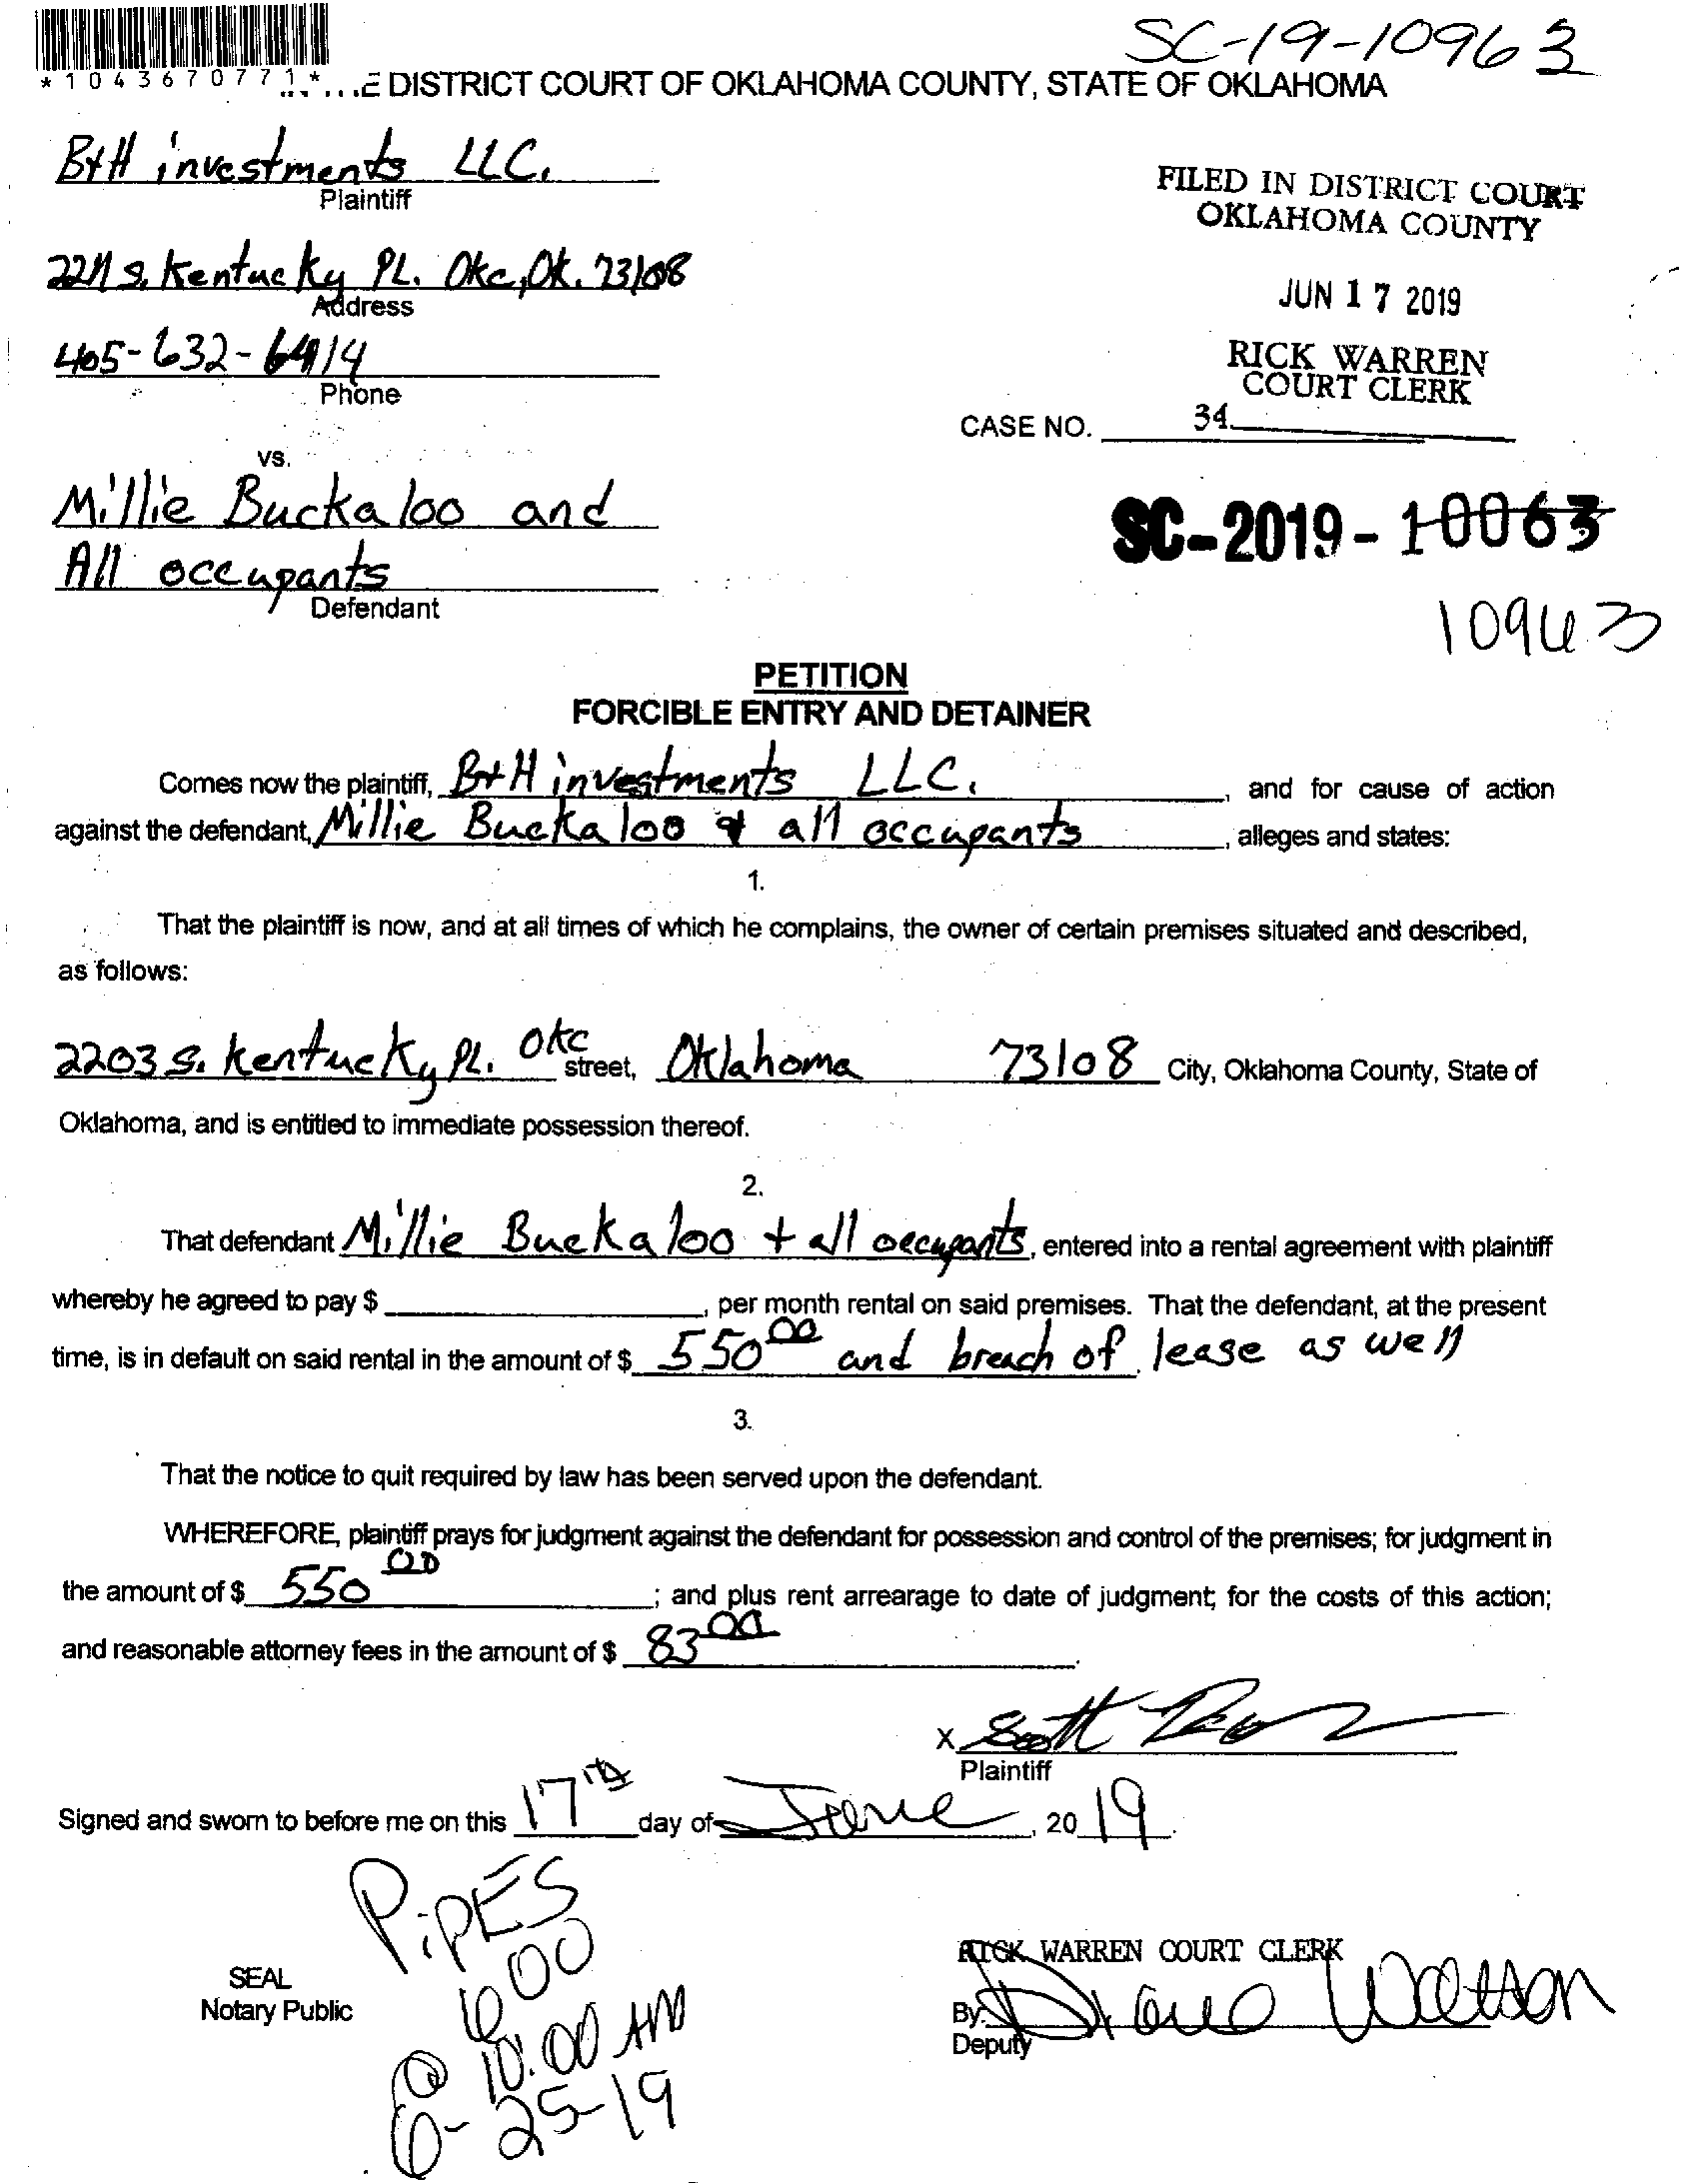 SC-19-10963
*1043670771*
E DISTRICT COURT OF OKLAHOMA COUNTY, STATE OF OKLAHOMA
B+H investments LLC.
Plaintiff
FILED IN DISTRICT COURT
OKLAHOMA COUNTY
2211 S. Kentucky PL. Okc, Ok. 73108
Address
JUN 17 2019
405-632-6414
Phone
RICK WARREN
COURT CLERK
CASE NO. 34
vs.
Millie Buckaloo and
All occupants
Defendant
SC-2019-10063
10963
PETITION
FORCIBLE ENTRY AND DETAINER
Comes now the plaintiff, B+H investments LLC. , and for cause of action
against the defendant, Millie Buckaloo & all occupants , alleges and states:
1.
That the plaintiff is now, and at all times of which he complains, the owner of certain premises situated and described,
as follows:
2203 S. Kentucky PL. Okc street, Oklahoma 73108 City, Oklahoma County, State of
Oklahoma, and is entitled to immediate possession thereof.
2.
That defendant Millie Buckaloo + all occupants, entered into a rental agreement with plaintiff
whereby he agreed to pay $ , per month rental on said premises. That the defendant, at the present
time, is in default on said rental in the amount of $ 550 00 and breach of lease as well
3.
That the notice to quit required by law has been served upon the defendant.
WHEREFORE, plaintiff prays for judgment against the defendant for possession and control of the premises; for judgment in
the amount of $ 550 00 ; and plus rent arrearage to date of judgment; for the costs of this action;
and reasonable attorney fees in the amount of $ 83 00 .
X Scott
Plaintiff
Signed and sworn to before me on this 17th day of June, 20 19.
PiPES
600
SEAL
Notary Public
@ 10:00 AM
6-25-19
RICK WARREN COURT CLERK
By: Watson
Deputy